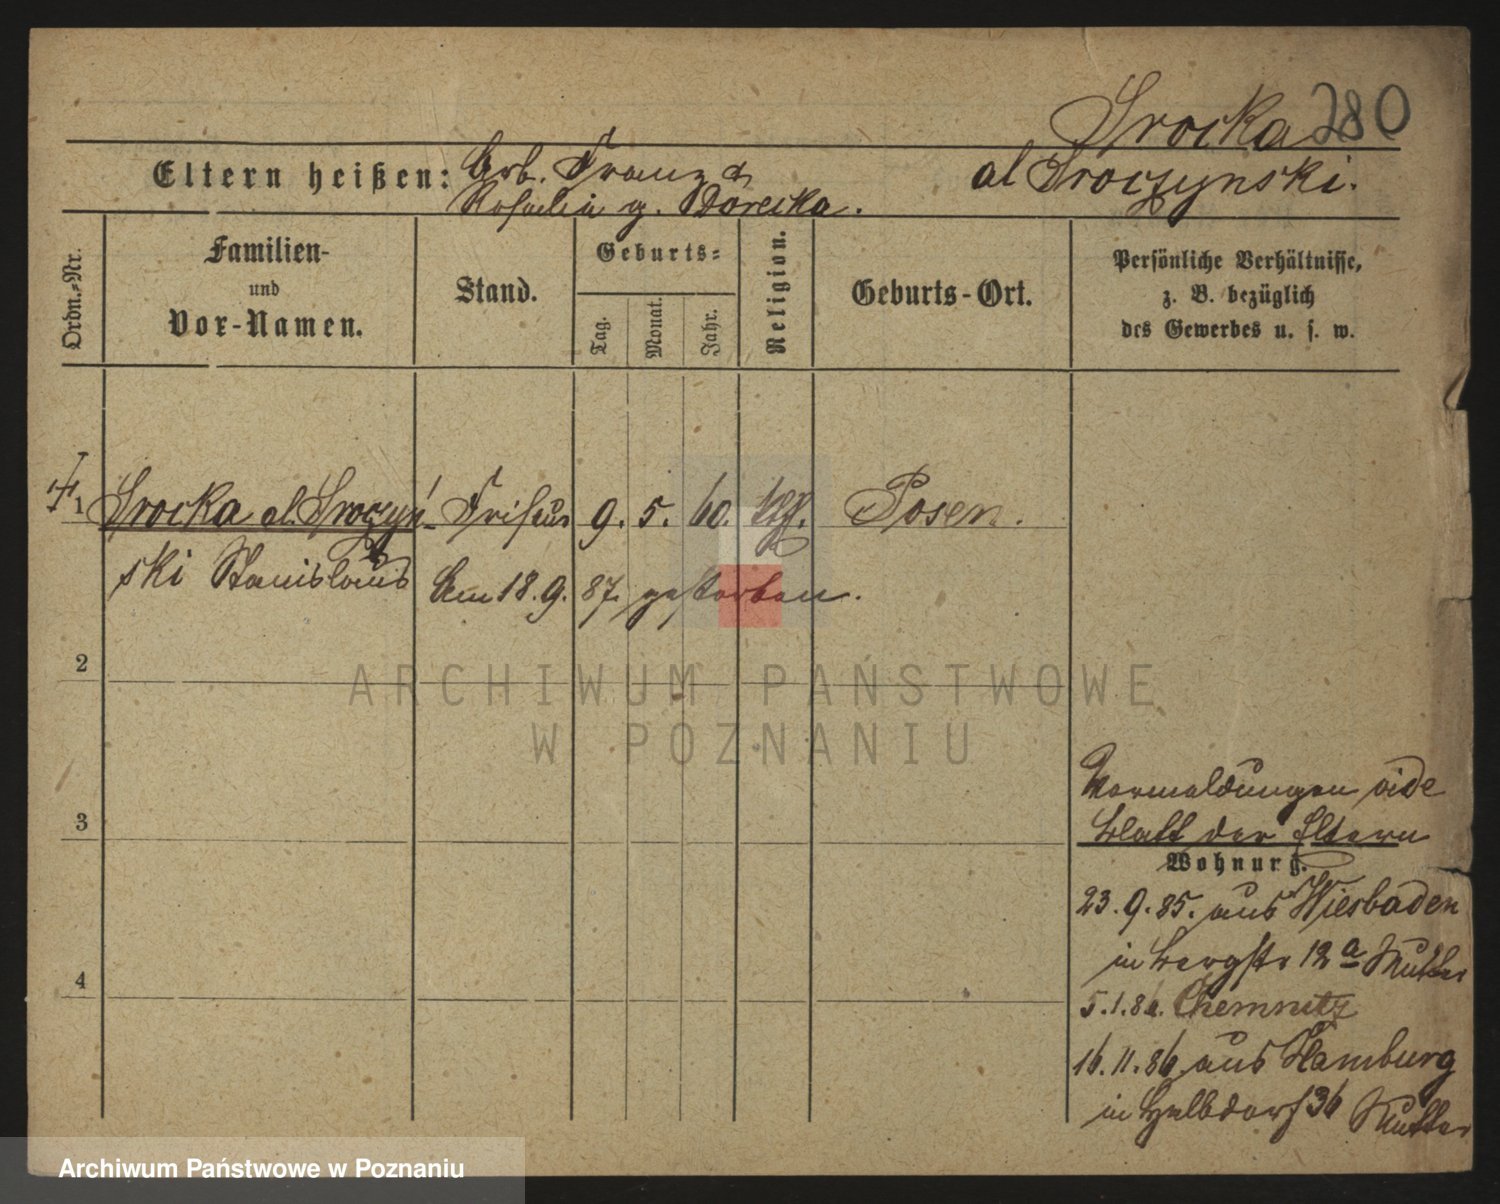 Srocka 280
al Sroczynski.
Eltern heißen: Arb. Franz &
Rosalia g. Dorecka.
Ordn.-Nr.
Familien-
und
Vor-Namen.
Stand.
Geburts-
Tag.
Monat.
Jahr.
Religion.
Geburts-Ort.
Persönliche Verhältnisse,
z. B. bezüglich
des Gewerbes u. s. w.
1 Srocka al. Sroczyń- Friseur 9. 5. 60. kth. Posen.
ski Stanislaus Am 18. 9. 87. gestorben.
2
ARCHIWUM PAŃSTWOWE
W POZNANIU
3
4
Vermeldungen vide
Blatt der Eltern
Wohnung.
23. 9. 85. aus Wiesbaden
in Bergstr 12a Mutter
5. 1. 86. Chemnitz
16. 11. 86. aus Hamburg
in Halbdorf 36 Mutter
Archiwum Państwowe w Poznaniu